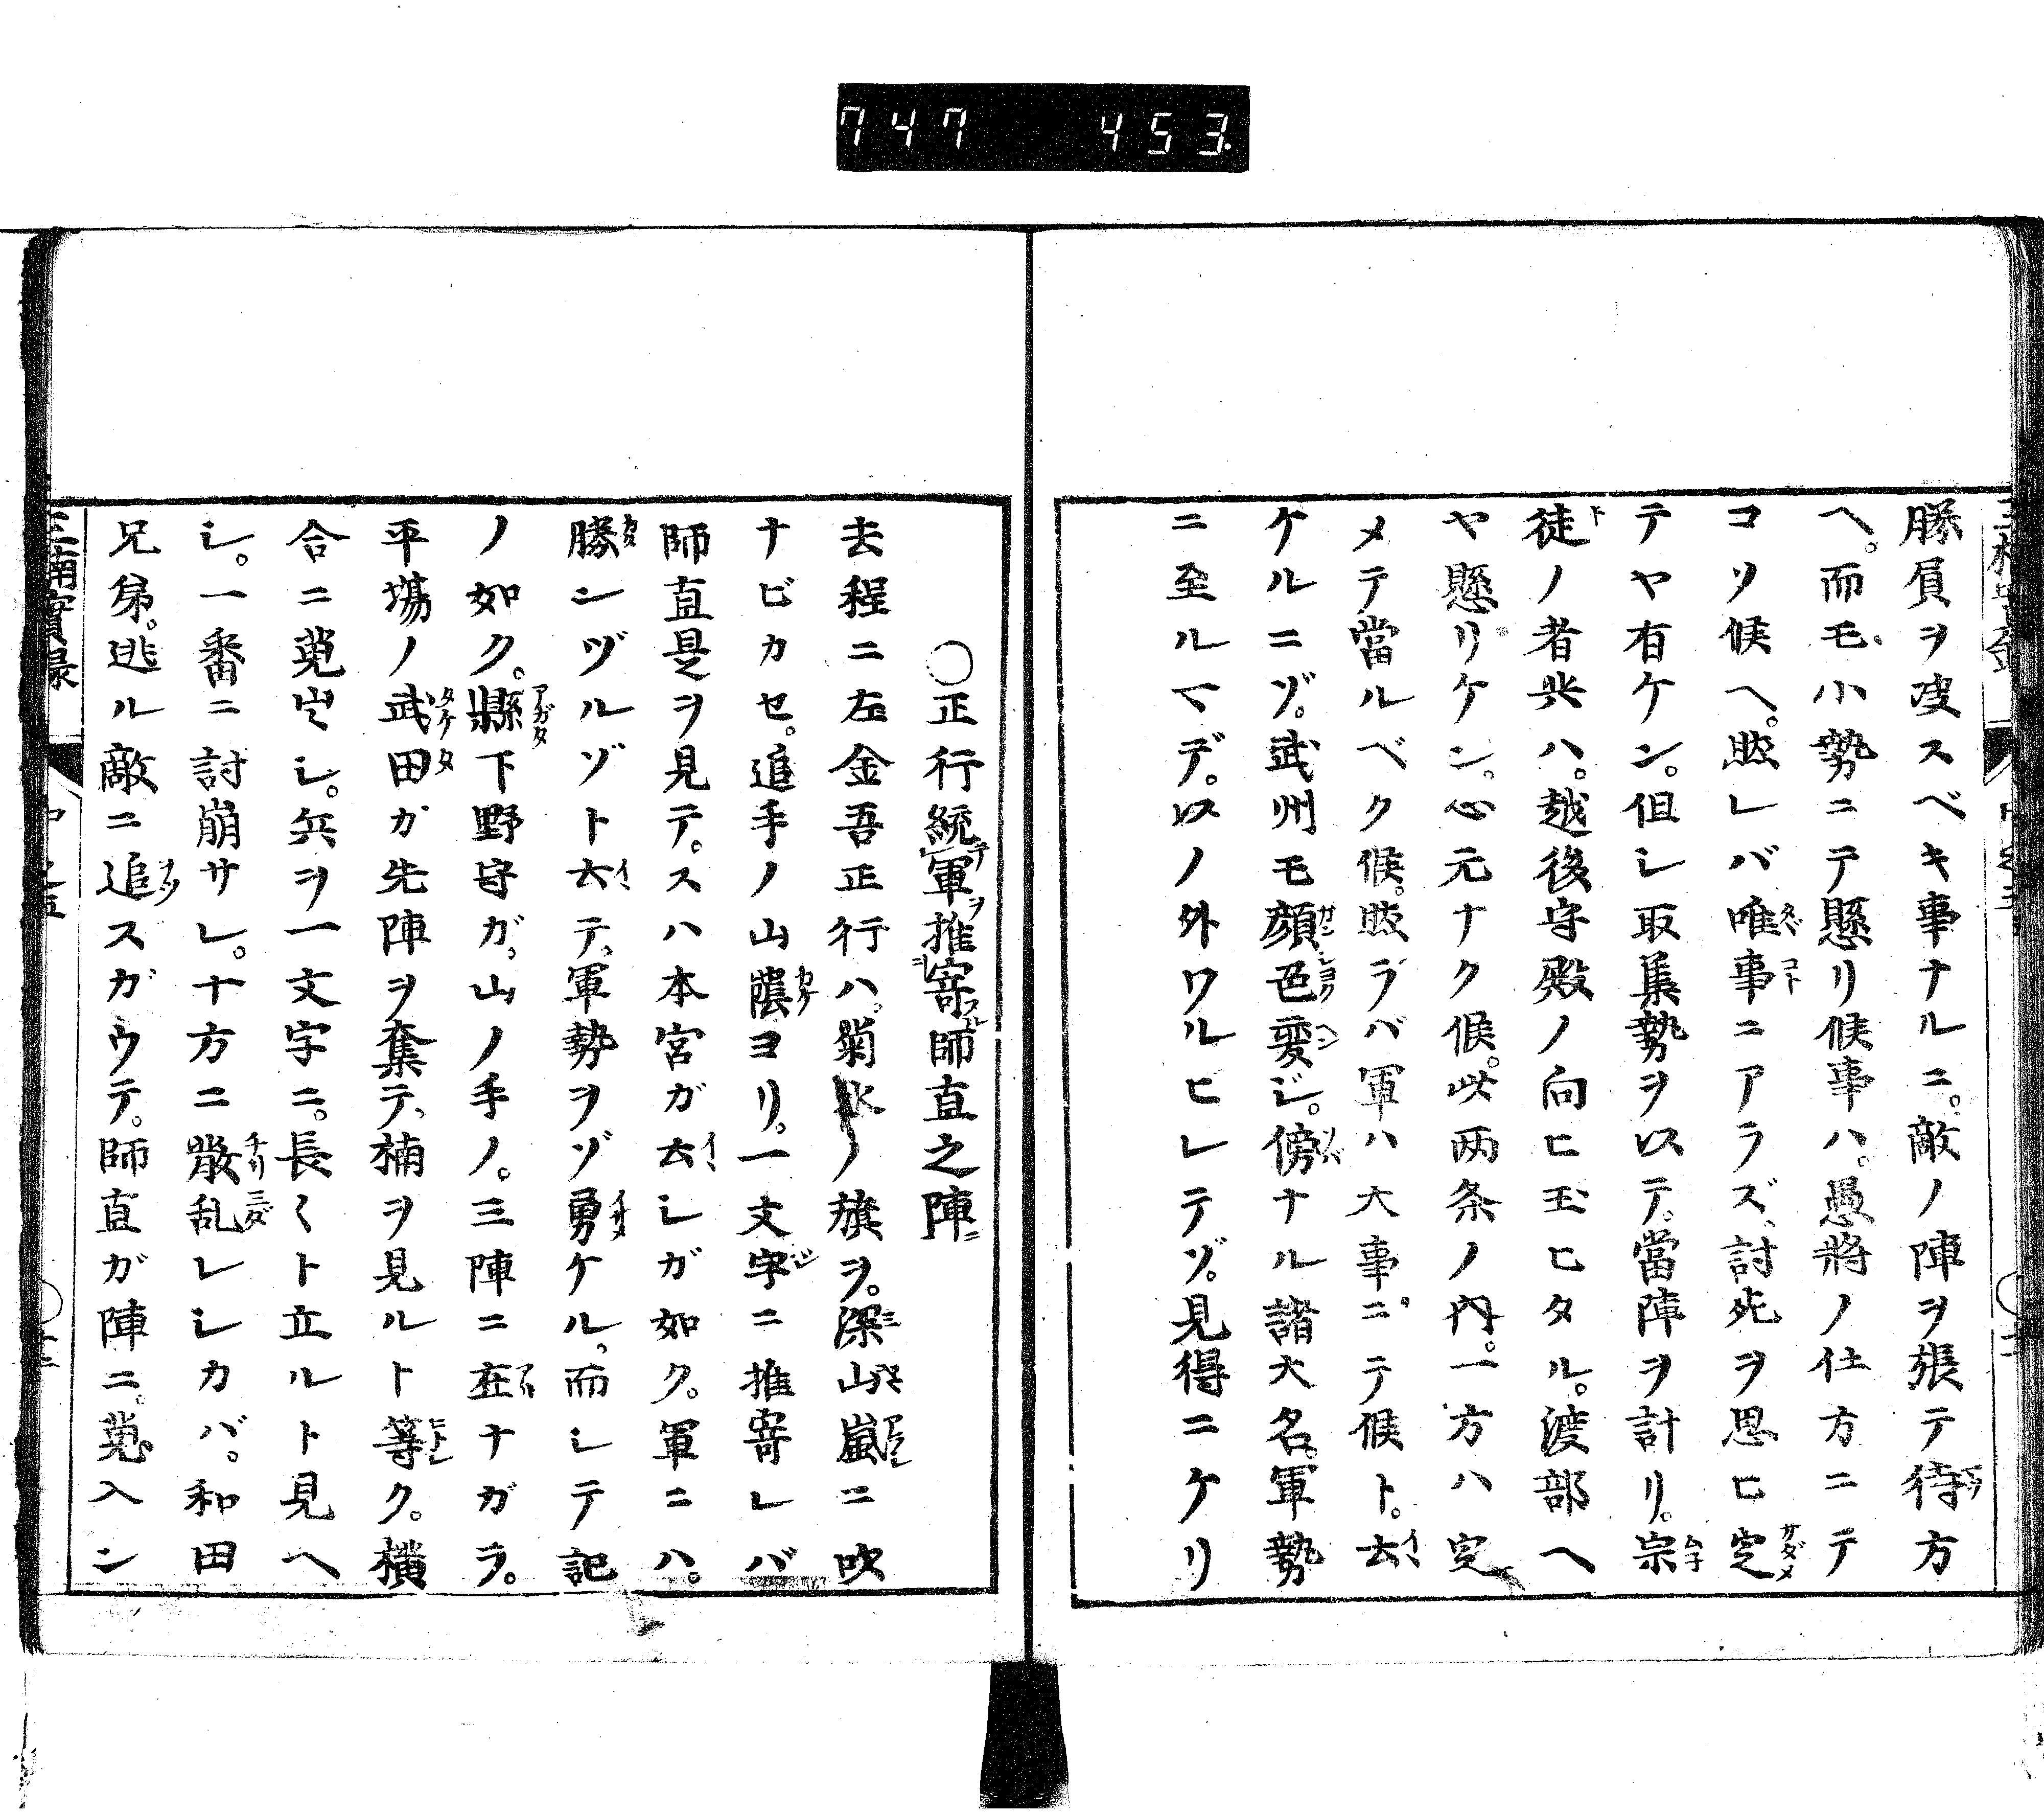 747 453.
勝負ヲ决スベキ事ナルニ。敵ノ陣ヲ張テ待方
ヘ。而モ小勢ニテ懸リ候事ハ。愚將ノ仕方ニテ
コソ候ヘ。然レバ唯事ニアラズ、討死ヲ思ヒ定
テヤ有ケン。但シ取集勢ヲ以テ。當陣ヲ計リ。宗
徒ノ者共ハ。越後守殿ノ向ヒ玉ヒタル。渡部ヘ
ヤ懸リケン。心元ナク候。此两条ノ内。一方ハ定
メテ當ルベク候。然ラバ軍ハ大事ニテ候ト。云
ケルニゾ。武州モ顔色変ジ。傍ナル諸大名。軍勢
ニ至ルマデ。以ノ外ワルビレテゾ。見得ニケリ
〇正行統軍推寄師直之陣
去程ニ左金吾正行ハ。菊水ノ旗ヲ。深山嵐ニ吹
ナビカセ。追手ノ山蔭ヨリ。一文字ニ推寄レバ
師直是ヲ見テ。スハ本宮ガ云シガ如ク。軍ニハ。
勝ンヅルゾト云テ。軍勢ヲゾ勇ケル。而シテ記
ノ如ク。縣下野守ガ。山ノ手ノ。三陣ニ在ナガラ。
平塲ノ武田ガ先陣ヲ奪テ、楠ヲ見ルト等ク。横
合ニ蒐出シ。兵ヲ一文字ニ。長〱ト立ルト見ヘ
シ。一番ニ討崩サレ。十方ニ散乱レシカバ。和田
兄弟。逃ル敵ニ追スガウテ。師直ガ陣ニ。蒐入ン
三楠實録